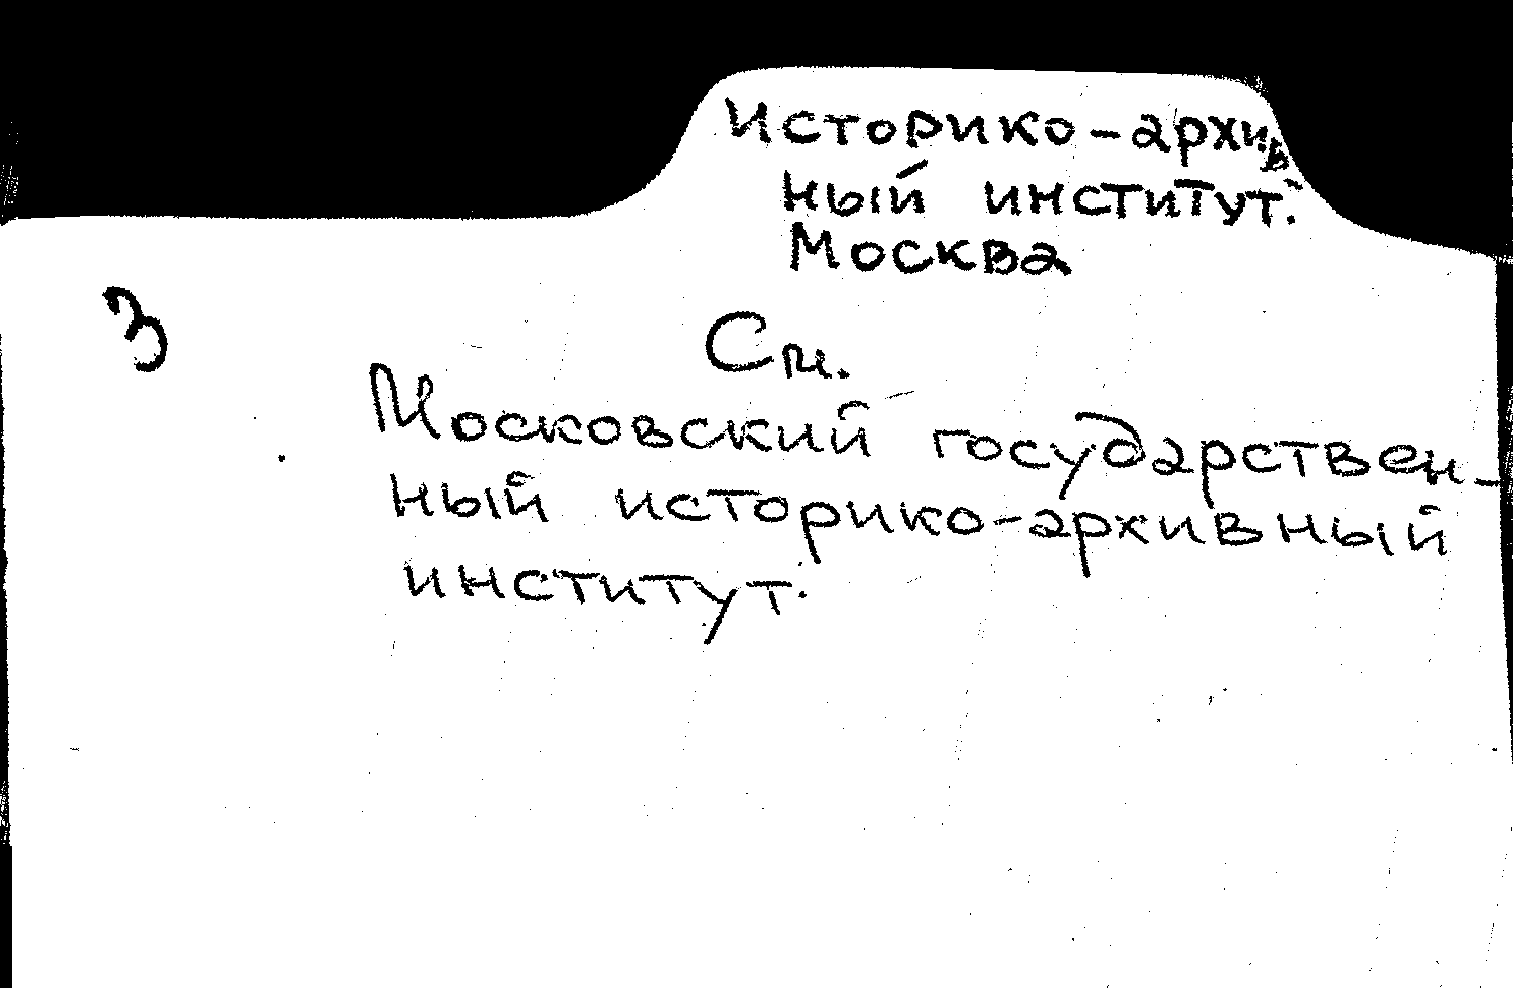 Историко-архив
ный институт.
Москва
З
См.
Московский государствен-
ный историко-архивный
институт.